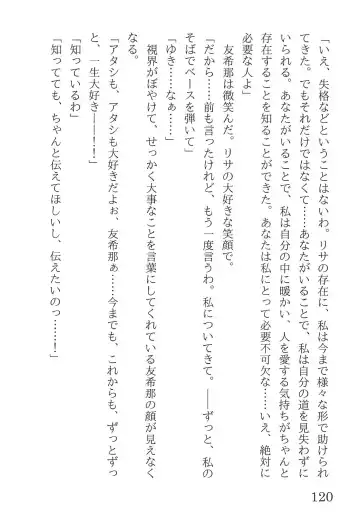 「いえ、失格などということはないわ。リサの存在に、私は今まで様々な形で助けられ
てきた。でもそれだけではなくて――あなたがいることで、私は自分の道を見失わずに
いられる。あなたがいることで、私は自分の中に暖かい、人を愛する気持ちがちゃんと
存在することを知ることができた。あなたは私にとって必要不可欠な……いえ、絶対に
必要な人よ」
友希那は微笑んだ。リサの大好きな笑顔で。
「だから……前も言ったけれど、もう一度言うわ。私についてきて。――ずっと、私の
そばでベースを弾いて」
「ゆき……なぁ……」
視界がぼやけて、せっかく大事なことを言葉にしてくれている友希那の顔が見えなく
なる。
「アタシも、アタシも大好きだよぉ、友希那ぁ……今までも、これからも、ずっとずっ
と、一生大好き――！！」
「知っているわ」
「知ってても、ちゃんと伝えてほしいし、伝えたいのっ……！」
120